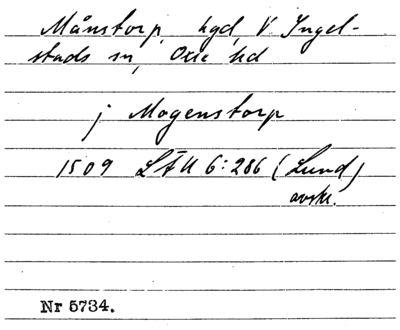 Månstorp, hgd, V Ingel-
stads sn, Oxie hd
j Mogenstorp
1509 LÄU 6:286 (Lund)
avskr.
Nr 5734.